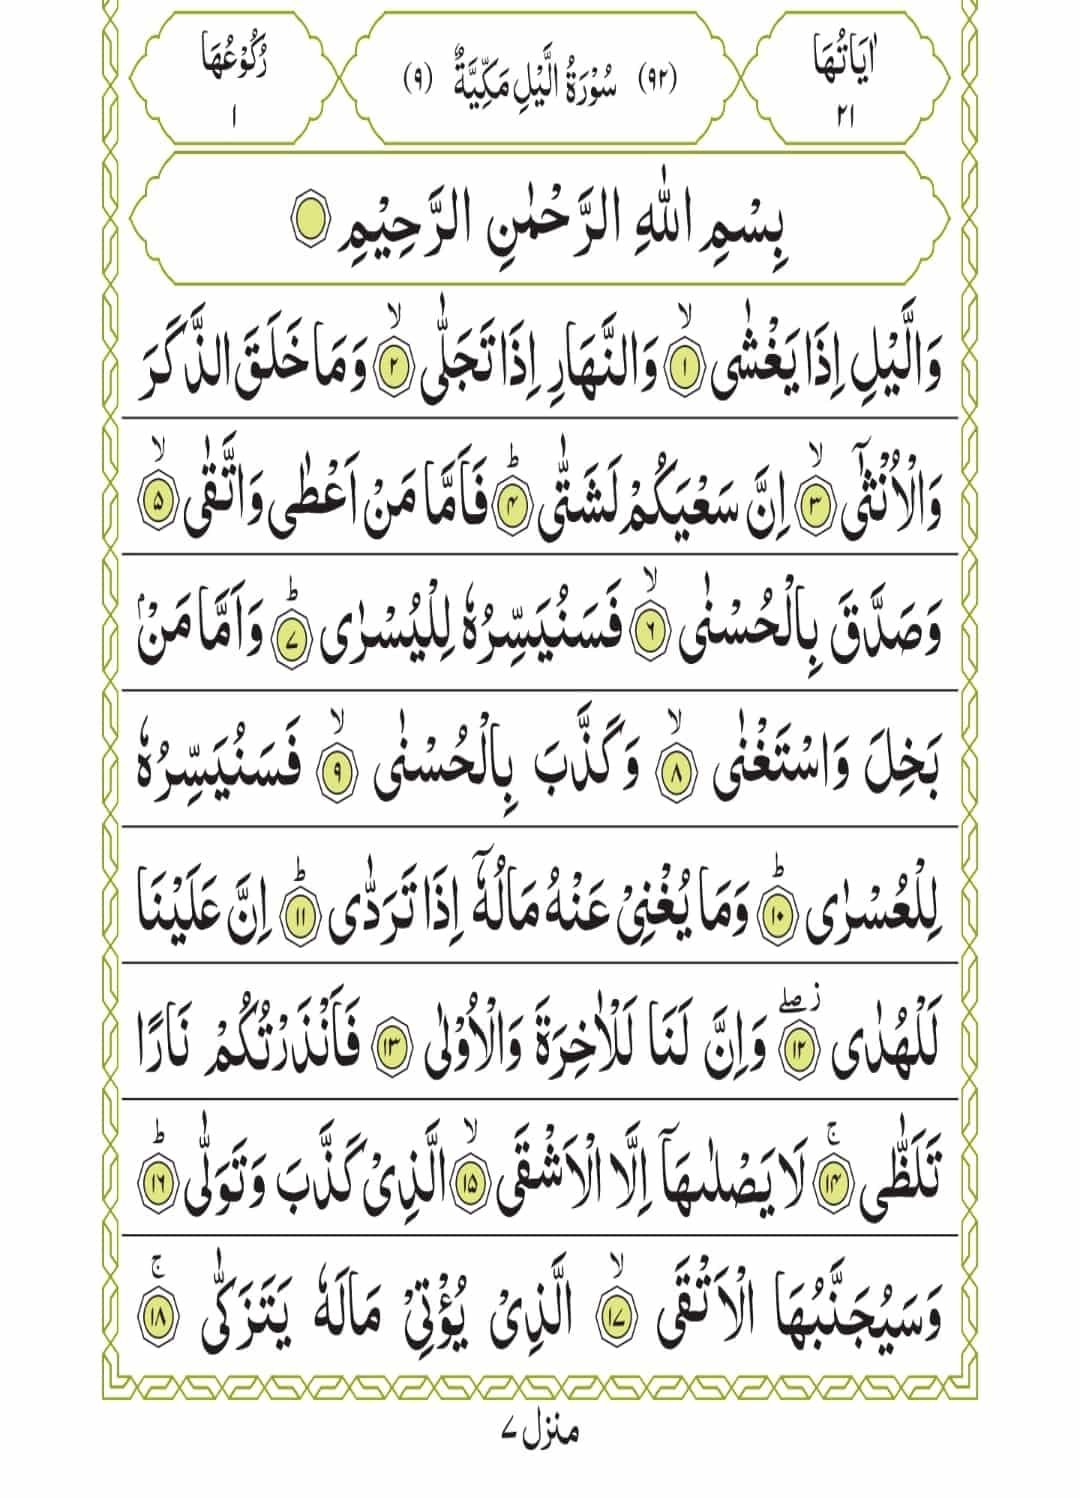 اٰيَاتُهَا ٢١
(٩٢) سُوْرَةُ الَّيْلِ مَكِّيَّةٌ (٩)
رُكُوْعُهَا ١
بِسْمِ اللّٰهِ الرَّحْمٰنِ الرَّحِيْمِ
وَالَّيْلِ اِذَا يَغْشٰى ۙ﴿١﴾ وَالنَّهَارِ اِذَا تَجَلّٰى ۙ﴿٢﴾ وَمَا خَلَقَ الذَّكَرَ
وَالْاُنْثٰٓى ۙ﴿٣﴾ اِنَّ سَعْيَكُمْ لَشَتّٰى ؕ﴿۴﴾ فَاَمَّا مَنْ اَعْطٰى وَاتَّقٰى ۙ﴿۵﴾
وَصَدَّقَ بِالْحُسْنٰى ۙ﴿۶﴾ فَسَنُيَسِّرُهٗ لِلْيُسْرٰى ؕ﴿۷﴾ وَاَمَّا مَنْۢ
بَخِلَ وَاسْتَغْنٰى ۙ﴿۸﴾ وَكَذَّبَ بِالْحُسْنٰى ۙ﴿۹﴾ فَسَنُيَسِّرُهٗ
لِلْعُسْرٰى ؕ﴿۱۰﴾ وَمَا يُغْنِىْ عَنْهُ مَالُهٗۤ اِذَا تَرَدّٰى ؕ﴿۱۱﴾ اِنَّ عَلَيْنَا
لَلْهُدٰى ۖز﴿۱۲﴾ وَاِنَّ لَنَا لَلْاٰخِرَةَ وَالْاُوْلٰى ﴿۱۳﴾ فَاَنْذَرْتُكُمْ نَارًا
تَلَظّٰى ۚ﴿۱۴﴾ لَا يَصْلٰىهَاۤ اِلَّا الْاَشْقَى ۙ﴿۱۵﴾ الَّذِىْ كَذَّبَ وَتَوَلّٰى ؕ﴿۱۶﴾
وَسَيُجَنَّبُهَا الْاَتْقَى ۙ﴿۱۷﴾ الَّذِىْ يُؤْتِىْ مَالَهٗ يَتَزَكّٰى ۚ﴿۱۸﴾
منزل ٧